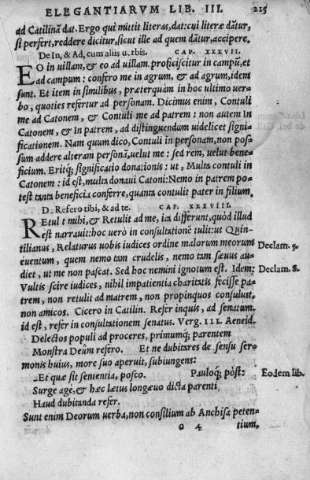 ELEGANTIARVM LIB. III. 215
ad Catilinā dat. Ergo qui mittit literas, dat: cui literæ dātur,
si perfert, reddere dicitur, sicut ille ad quem dātur, accipere.
De In, & Ad, cum aliis q. rbis. CAP. XXXVII.
EO in uillam, & eo ad uillam. proficiscitur in campū, et
ad campum: confero me in agrum, & ad agrum, idem
sunt. Et item in similibus, præterquàm in hoc ultimo uer=
bo, quoties refertur ad personam. Dicimus enim, Contuli
me ad Catonem, & Contuli me ad patrem: non autem in
Catonem, & in patrem, ad distinguendum uidelicet signi=
ficationem. Nam quum dico, Contuli in personam, non pos=
sum addere alteram personā, uelut me: sed rem, uelut bene=
ficium. Eritq́; significatio donationis: ut, Multa contuli in
Catonem: id est, multa donaui Catoni: Nemo in patrem po=
test tanta beneficia conferre, quanta contulit pater in filium.
D. Refero tibi, & ad te. CAP. XXXVIII.
REtulit mihi, & Retulit ad me, ita differunt, quòd illud
est narrauit: hoc uerò in consultatione tulit: ut Quin=
tilianus, Relaturus uobis iudices ordine malorum meorum Declam. 5.
euentum, quem nemo tam crudelis, nemo tam sæuus au=
diet, ut me non pascat. Sed hoc nemini ignotum est. Idem: Declam. 8.
Vultis scire iudices, nihil impatientia charitatis fecisse pa=
trem, non retulit ad matrem, non propinquos consuluit,
non amicos. Cicero in Catilin. Refer inquis, ad senatum.
id est, refer in consultationem senatus. Verg. III. Aeneid.
Delectos populi ad proceres, primumq́; parentem
Monstra Deûm refero. Et ne dubitares de sensu ser=
monis huius, more suo aperuit, subiungens:
Et quæ sit sententia, posco. Pauloq́; pòst: Eodem lib.
Surge age, & hæc lætus longæuo dicta parenti
Haud dubitanda refer.
Sunt enim Deorum uerba, non consilium ab Anchisa peten=
o 4 tium,